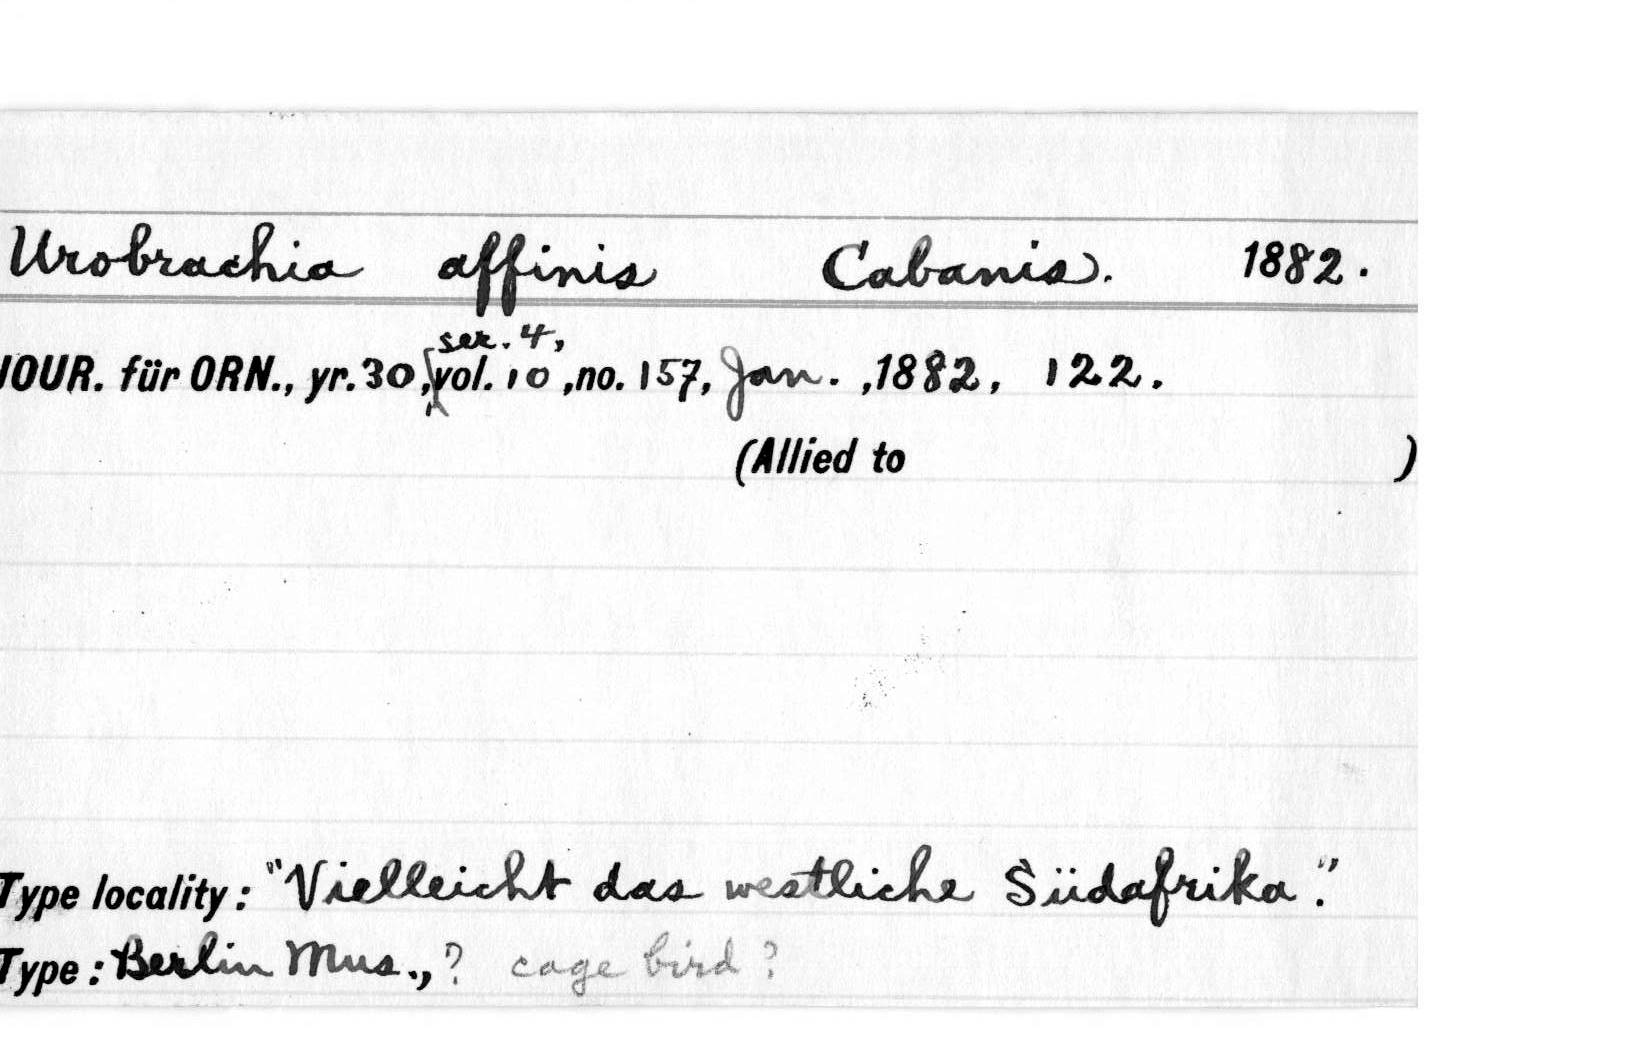 Urobrachia affinis Cabanis. 1882.
JOUR. für ORN., yr. 30, ser. 4, vol. 10, no. 157, Jan., 1882, 122.
(Allied to )
Type locality: "Vielleicht das westliche Südafrika."
Type: Berlin Mus., ? cage bird ?